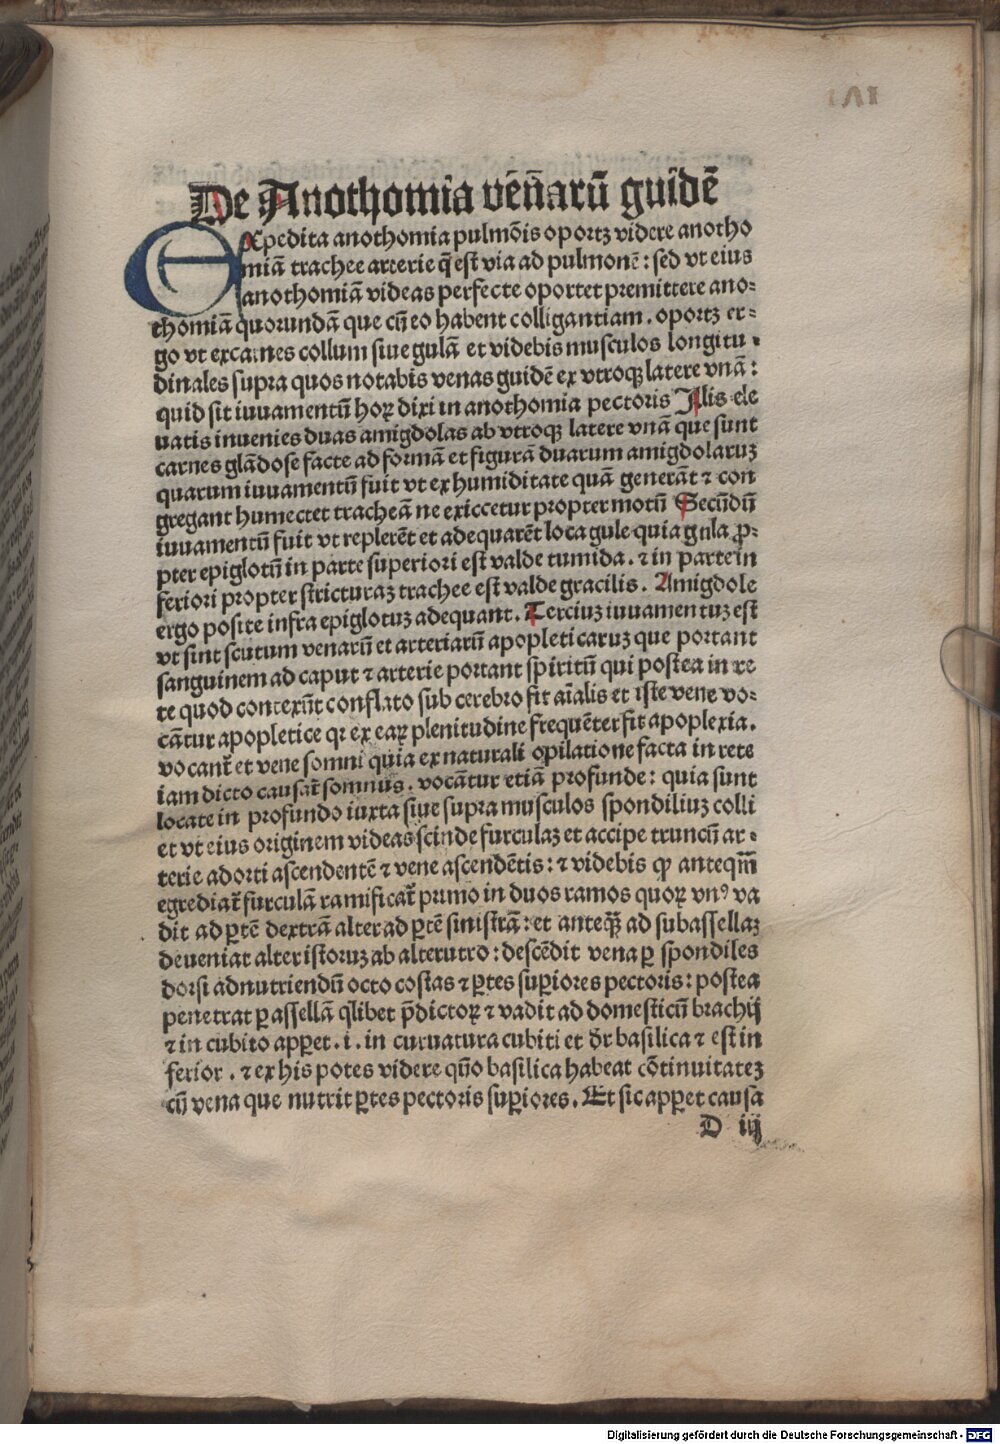 De Anothomia vēn̄arū guidē
EXpedita anothomia pulmōis oportꝫ videre anotho
miā trachee arterie q̄ est via ad pulmonē: sed vt eius
anothomiā videas perfecte oportet premittere ano⸗
thomiā quorundā que cū eo habent colligantiam. oportꝫ er⸗
go vt excarnes collum siue gulā et videbis musculos longitu⸗
dinales supra quos notabis venas guidē ex vtroqꝫ latere vnā:
quid sit iuuamentū hoꝝ dixi in anothomia pectoris Illis ele
uatis inuenies duas amigdolas ab vtroqꝫ latere vnā que sunt
carnes glādose facte ad formā et figurā duarum amigdolaruꝫ
quarum iuuamentū fuit vt ex humiditate quā generāt ⁊ con
gregant humectet tracheā ne exiccetur propter motū Secūdū
iuuamentū fuit vt replerēt et adequarēt loca gule quia gula ꝓ⸗
pter epiglotū in parte superiori est valde tumida. ⁊ in parte in
feriori propter stricturaꝫ trachee est valde gracilis. Amigdole
ergo posite infra epiglotuꝫ adequant. Terciuꝫ iuuamentuꝫ est
vt sint scutum venarū et arteriarū apopleticaruꝫ que portant
sanguinem ad caput ⁊ arterie portant spiritū qui postea in re
te quod contexūt conflato sub cerebro fit aīalis et iste vene vo⸗
cātur apopletice qꝛ ex eaꝝ plenitudine frequēter fit apoplexia.
vocant᷑ et vene somni quia ex naturali opilatione facta in rete
iam dicto causat᷑ somnus. vocātur etiā profunde: quia sunt
locate in profundo iuxta siue supra musculos spondiliuꝫ colli
et vt eius originem videas scinde furculaꝫ et accipe truncū ar⸗
terie adorti ascendentē ⁊ vene ascendētis: ⁊ videbis ꝙ anteqm̄
egrediat᷑ furculā ramificat᷑ primo in duos ramos quoꝝ vnꝰ va
dit ad ꝑtē dextrā alter ad ꝑtē sinistrā: et anteqꝫ ad subassellaꝫ
deueniat alter istoruꝫ ab alterutro: descēdit vena ꝑ spondiles
dorsi ad nutriendū octo costas ⁊ ꝑtes suꝑiores pectoris: postea
penetrat ꝑ assellā qlibet p̄dictoꝝ ⁊ vadit ad domesticū brachij
⁊ in cubito apꝑet. i. in curuatura cubiti et dr̄ basilica ⁊ est in
ferior. ⁊ ex his potes videre qn̄o basilica habeat cōtinuitateꝫ
cū vena que nutrit ꝑtes pectoris suꝑiores. Et sic apꝑet causa
D iij
Digitalisierung gefördert durch die Deutsche Forschungsgemeinschaft - DFG